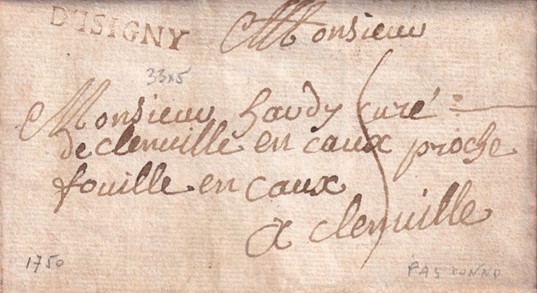 D'ISIGNY
Monsieur
33x5
Monsieur hardy curé
de clenville en caux proche
fouille en caux
a clenville
1750
PAS CONNU